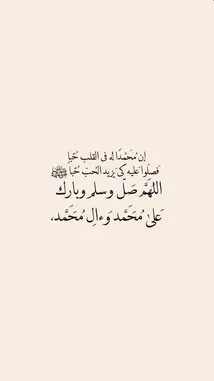 إن مُحَمَّدًا له فى القلب حُبًا
فَصلوا عليه كى يزيد الحُب حُبًا ﷺ
اللهم صَلّ وسلم وبارك
عَلىٰ مُحَمَّد وَءالِ مُحَمَّد،